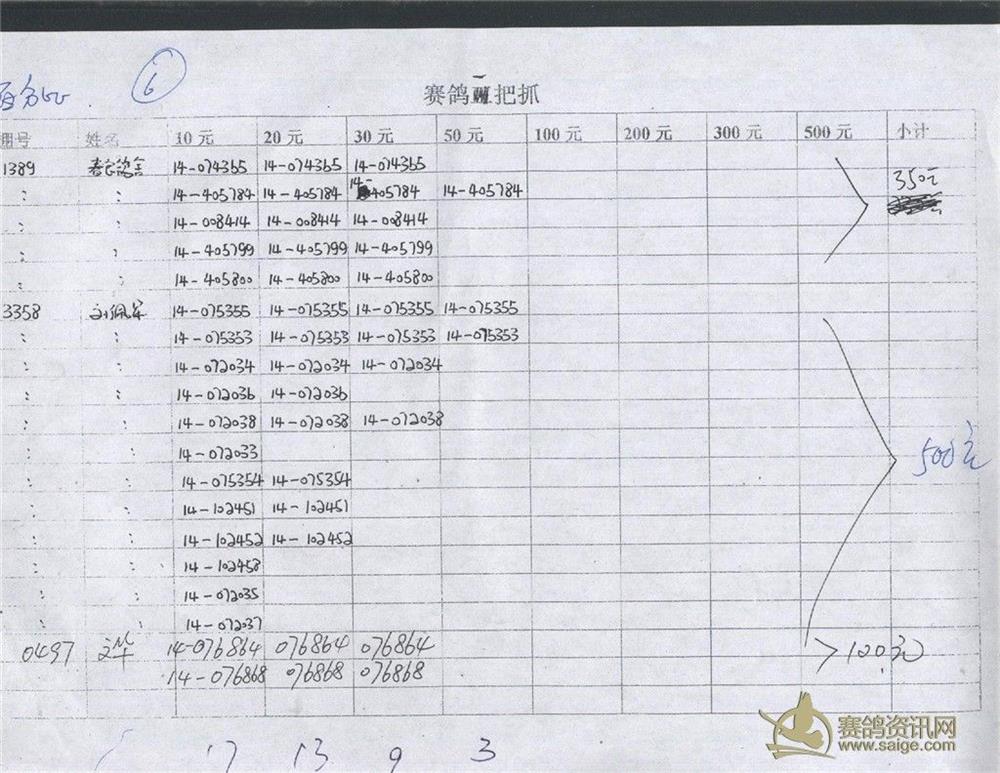 6
赛鸽一把抓
棚号 姓名 10 元 20 元 30 元 50 元 100 元 200 元 300 元 500 元 小计
1389 14-074365 14-074365 14-074365 350元
〃 〃 14-405784 14-405784 14-405784 14-405784
〃 〃 14-008414 14-008414 14-008414
〃 〃 14-405799 14-405799 14-405799
〃 〃 14-405800 14-405800 14-405800
3358 刘佩军 14-075355 14-075355 14-075355 14-075355
〃 〃 14-075353 14-075353 14-075353 14-075353
〃 〃 14-072034 14-072034 14-072034
〃 〃 14-072036 14-072036
〃 〃 14-072038 14-072038 14-072038
〃 〃 14-072033 500元
〃 〃 14-075354 14-075354
〃 〃 14-102451 14-102451
〃 〃 14-102452 14-102452
〃 〃 14-102458
〃 〃 14-072035
〃 〃 14-072037
0497 14-076864 076864 076864 120元
14-076868 076868 076868
17 13 9 3
赛鸽资讯网
www.saige.com